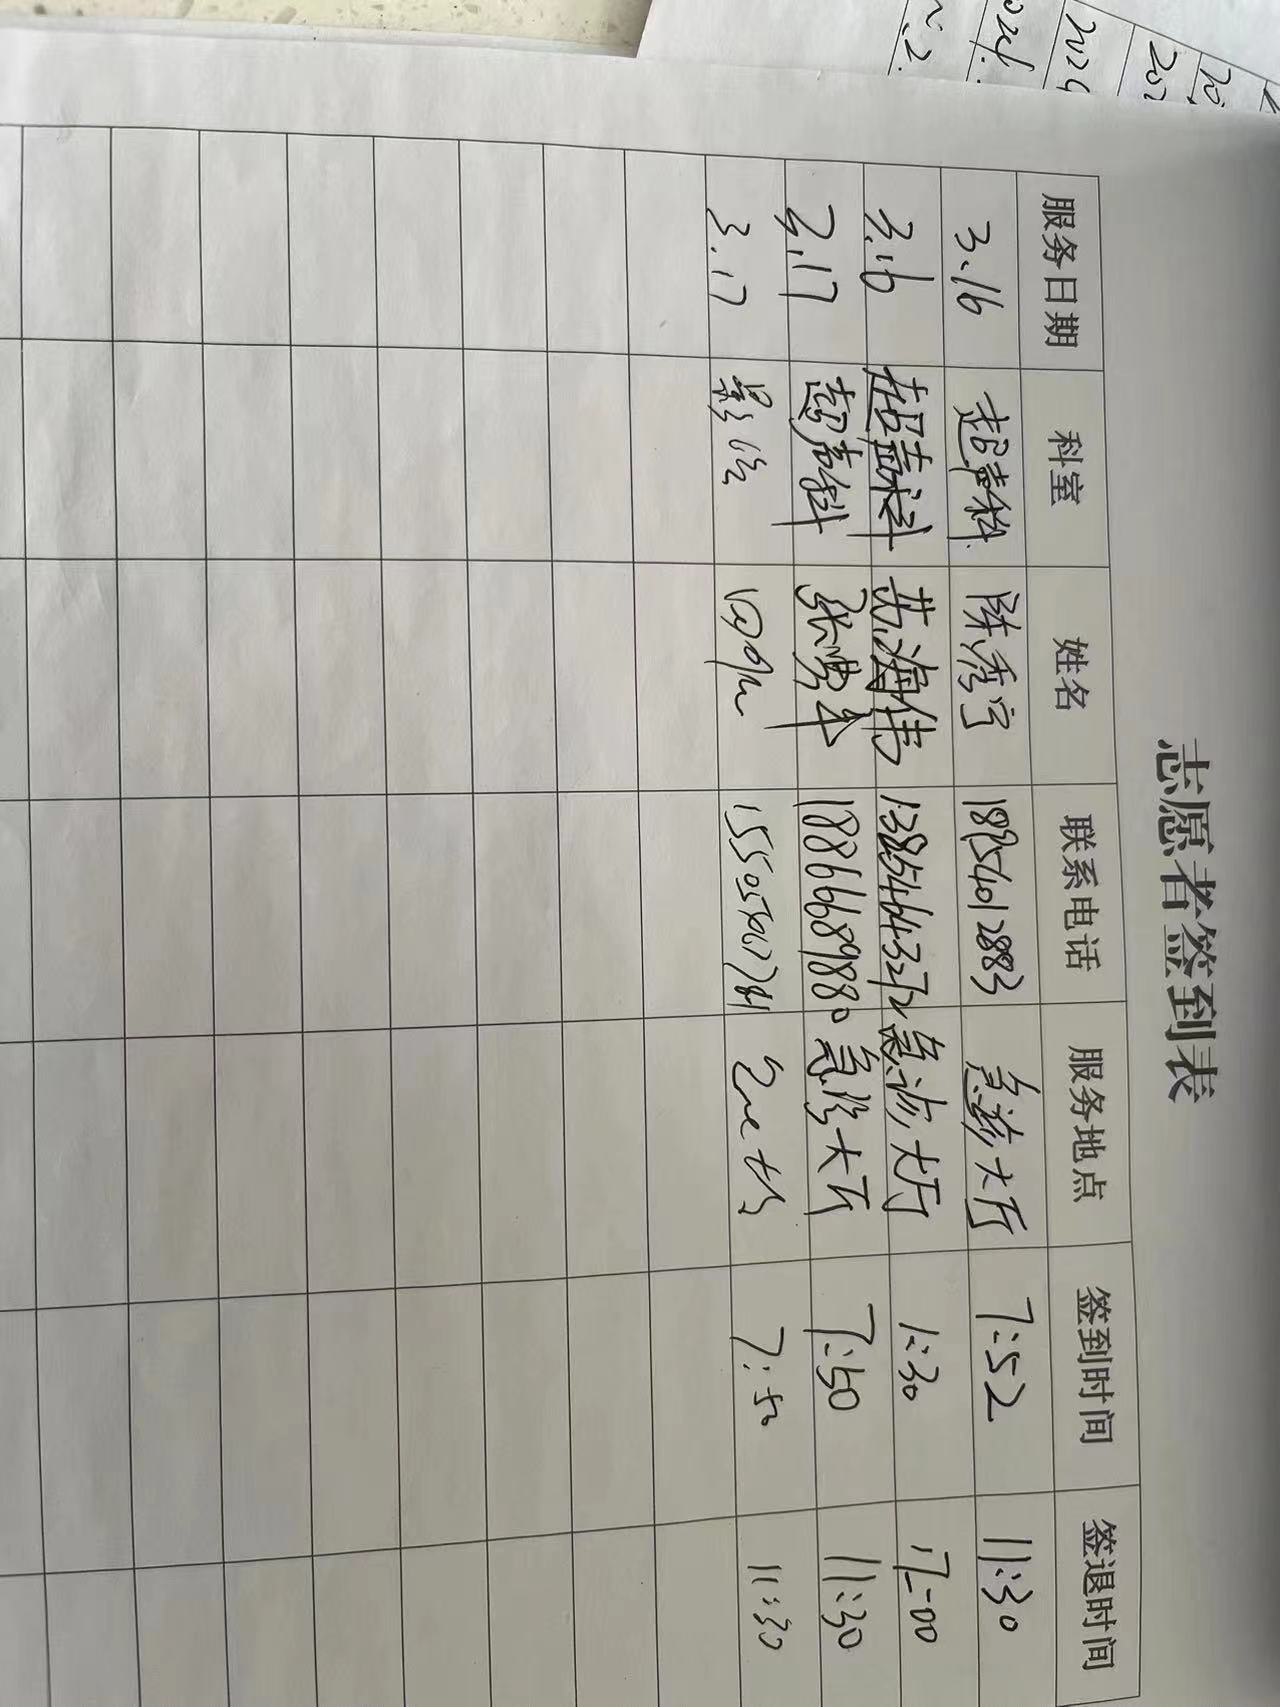 志愿者签到表
服务日期 科室 姓名 联系电话 服务地点 签到时间 签退时间
3.16 超声科 陈秀宁 18954012883 急诊大厅 7:52 11:30
3.16 超声科 苏海伟 急诊大厅 1:30 17:00
3.17 超声科 张 18866689880 急诊大厅 7:50 11:30
3.17 影像 7:50 11:30